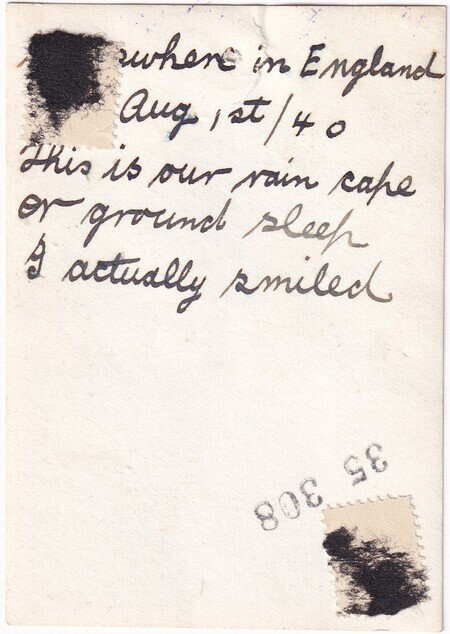 where in England
Aug, 1st/40
This is our rain cape
or ground sleep
I actually smiled
35 308